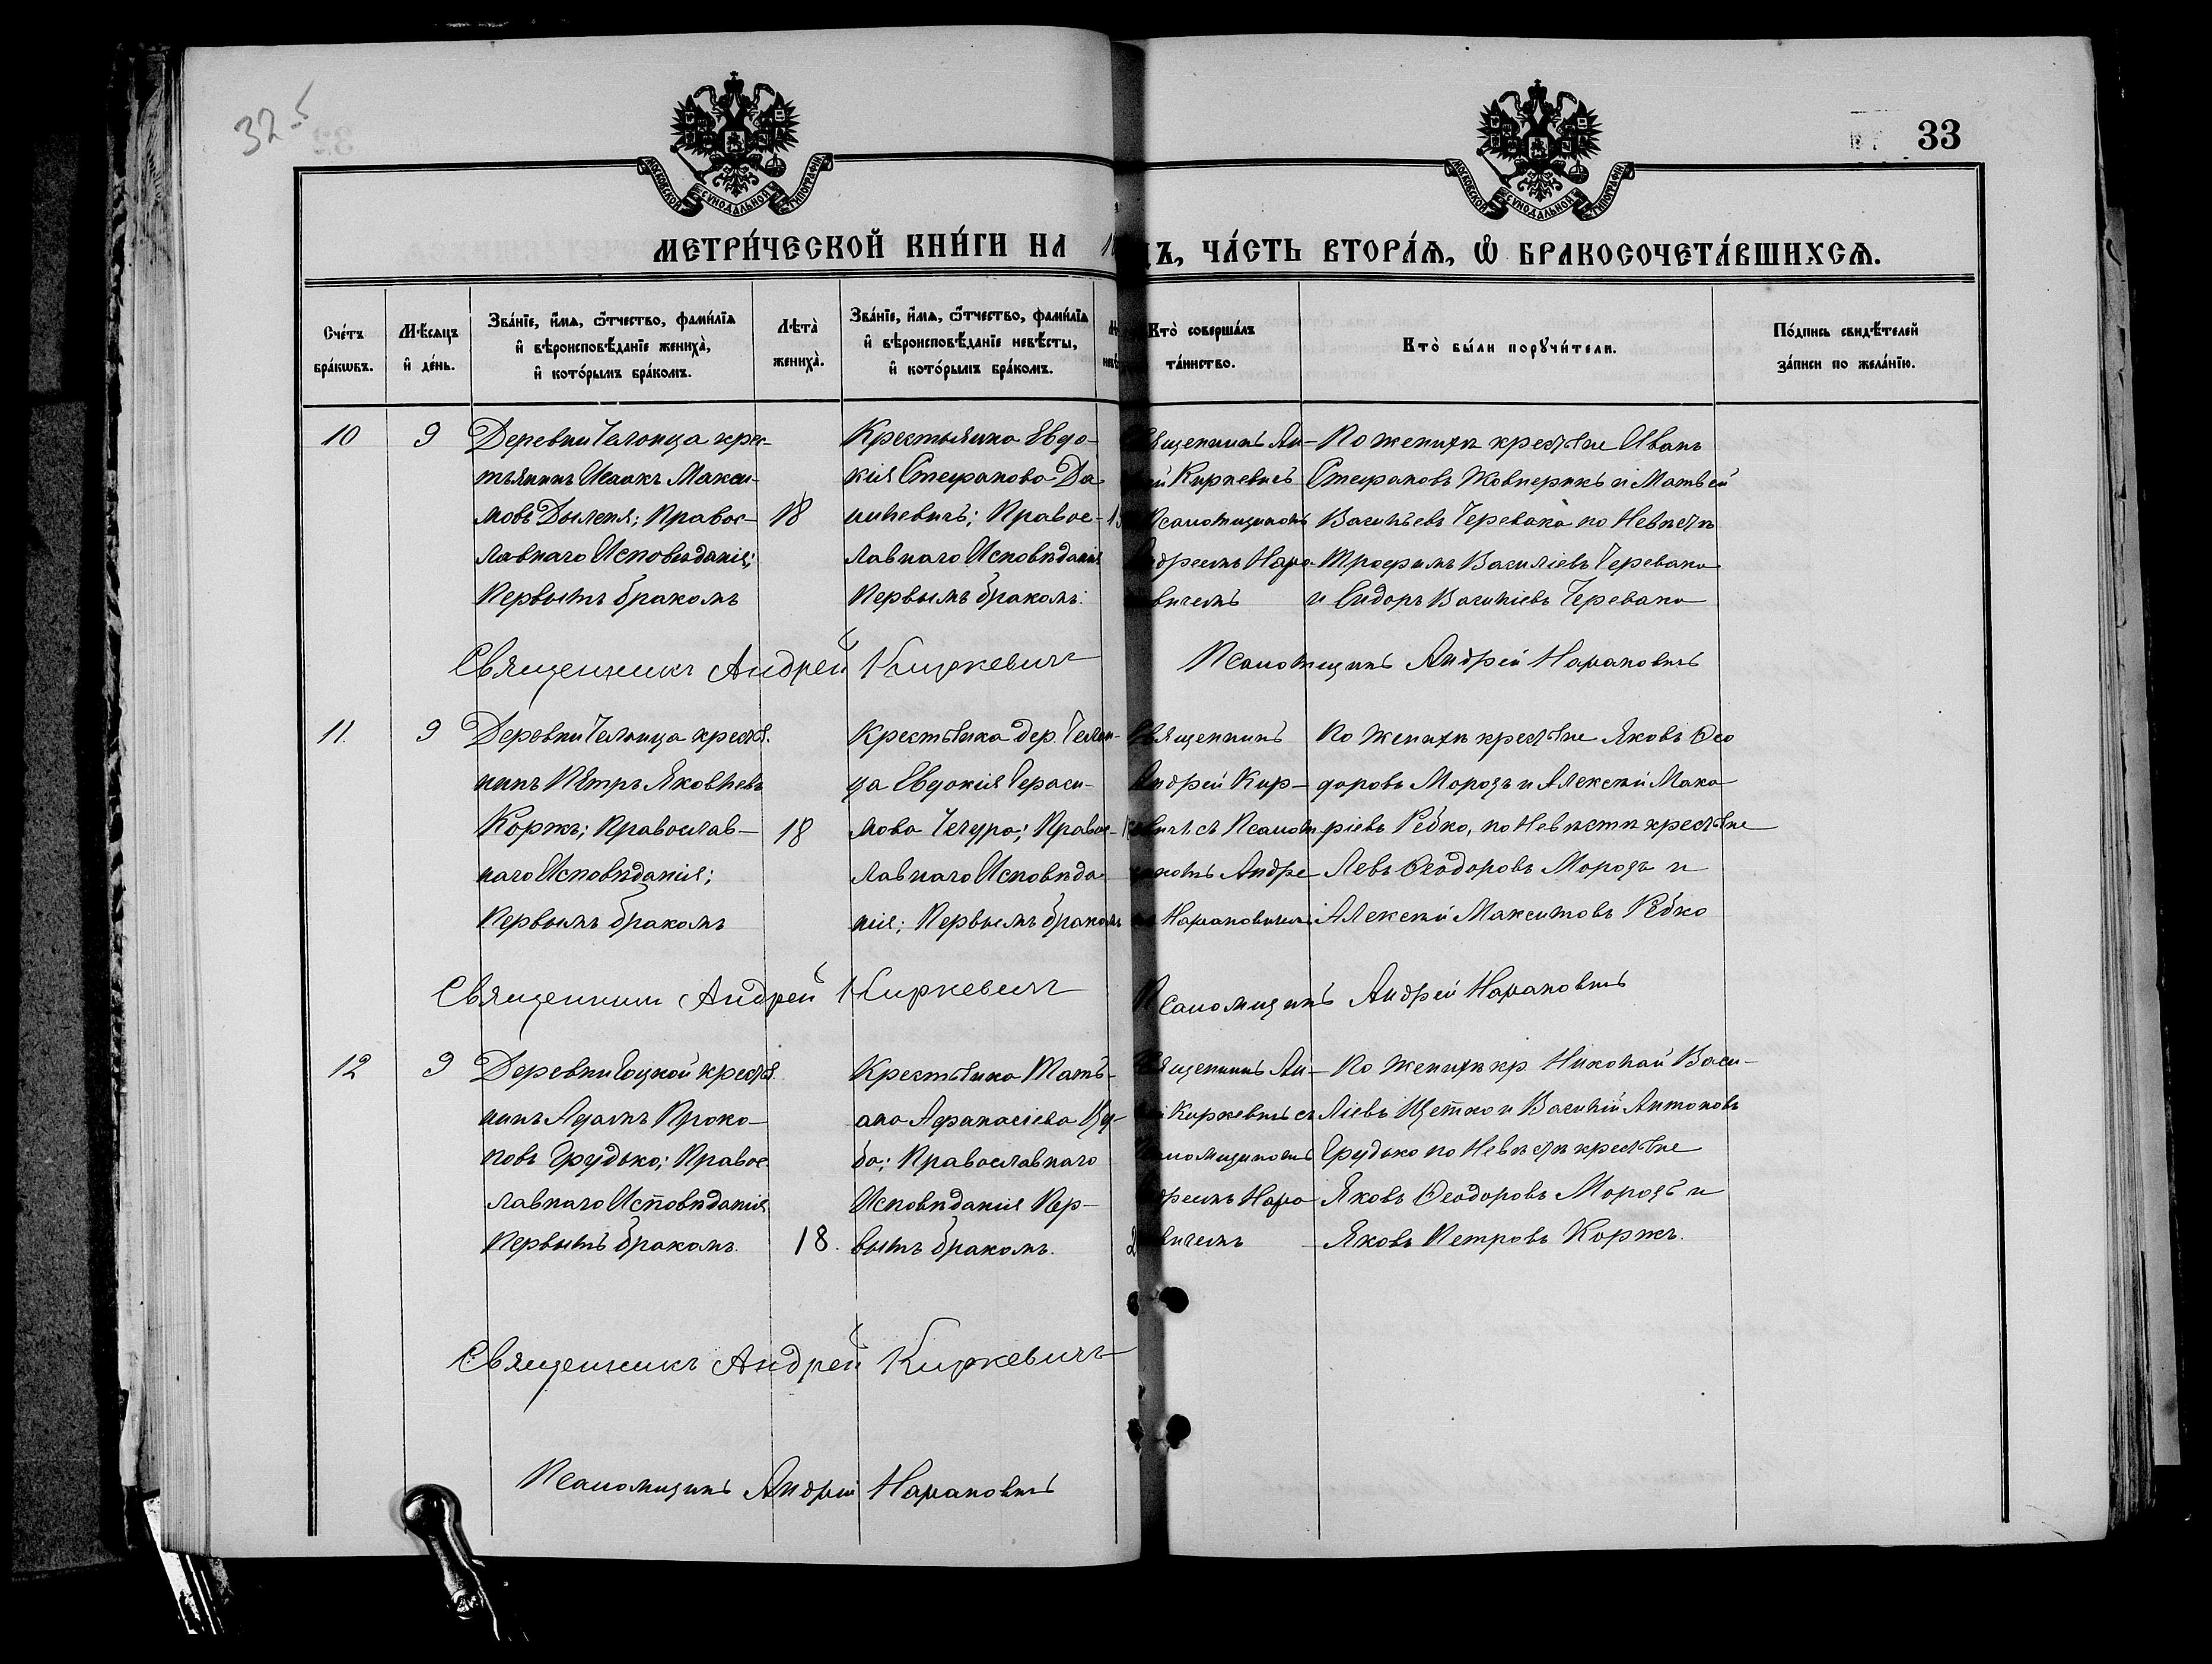 32 5
33
МОСКОВСКОЙ СѴНОДАЛЬНОЙ ТИПОГРАФІИ
МОСКОВСКОЙ СѴНОДАЛЬНОЙ ТИПОГРАФІИ
МЕТРИ́ЧЕСКОЙ КНИ́ГИ НА 1
Ъ, ЧА́СТЬ ВТОРА́Ѧ, Ѡ҆ БРАКОСОЧЕТА́ВШИХСѦ.
Сче́тъ бра́кѡвъ.
Мѣ́сяцъ и҆ де́нь.
Зва́нїе, и҆́мѧ, ѻ҆́тчество, фами́лїѧ и҆ вѣроисповѣ́данїе жениха̀, и҆ кото́рымъ бра́комъ.
Лѣта̀ жениха̀.
Зва́нїе, и҆́мѧ, ѻ҆́тчество, фами́лїѧ и҆ вѣроисповѣ́данїе невѣ́сты, и҆ кото́рымъ бра́комъ.
Кто̀ соверша́лъ та́инство.
Кто̀ бы́ли порꙋчи́тели.
По́дпись свидѣ́телей за́писи по жела́нїю.
10
9
Деревни Челонца крес-
тьянинъ Исаакъ Макси-
мовъ Дыленя; Правос-
лавнаго Исповѣданія;
Первымъ бракомъ
18
Крестьянка Евдо-
кія Стефанова Да-
ниневичъ; Правос-
лавнаго Исповѣданія
Первымъ бракомъ.
Священникъ Ан-
ей Киркевичъ
Псаломщикомъ
Андреемъ Нара-
вичемъ
По женихѣ крестьяне Иванъ
Стефановъ Жовнерикъ и Матвей
Васильевъ Черевака по Невѣстѣ
Трофимъ Василіевъ Черевако
и Сидоръ Василіевъ Черевако
Священникъ Андрей Киркевичъ
Псаломщикъ Андрей Нарановичъ
11.
9
Деревни Челонца крестья-
нинъ Петръ Яковлевъ
Коржъ; Православ-
наго Исповѣданія;
Первымъ бракомъ
18
Крестьянка дер. Челон-
ца Евдокія Гераси-
мова Чечура; Правос-
лавнаго Исповѣда-
нія; Первымъ бракомъ
Священникъ
Андрей Кир-
кевичъ съ Псалом-
щикомъ Андре-
Нарановичемъ
По женихѣ крестьяне Яковъ Ѳео
доровъ Морозъ и Алексѣй Мака
ріевъ Рѣдко, по Невѣстѣ крестьяне
Левъ Ѳеодоровъ Морозъ и
Алексѣй Максимовъ Рѣдко
Священникъ Андрей Киркевичъ
Псаломщикъ Андрей Нарановичъ
12
9
Деревни Гоцкой крестья-
нинъ Адамъ Проко-
повъ Грудько; Правос-
лавнаго Исповѣданія
Первымъ бракомъ.
18.
Крестьянка Татья-
на Афанасіева
ба; Православнаго
Исповѣданія Пер-
вымъ бракомъ.
2
Священникъ Ан-
Киркевичъ съ
Псаломщикомъ
Андреемъ Нара
вичемъ
По Женихѣ кр. Николай Васи-
ліевъ Щетко и Василій Антоновъ
Грудько по Невѣстѣ крестьяне
Яковъ Ѳеодоровъ Морозъ и
Яковъ Петровъ Коржъ.
Священникъ Андрей Киркевичъ
Псаломщикъ Андрей Нарановичъ